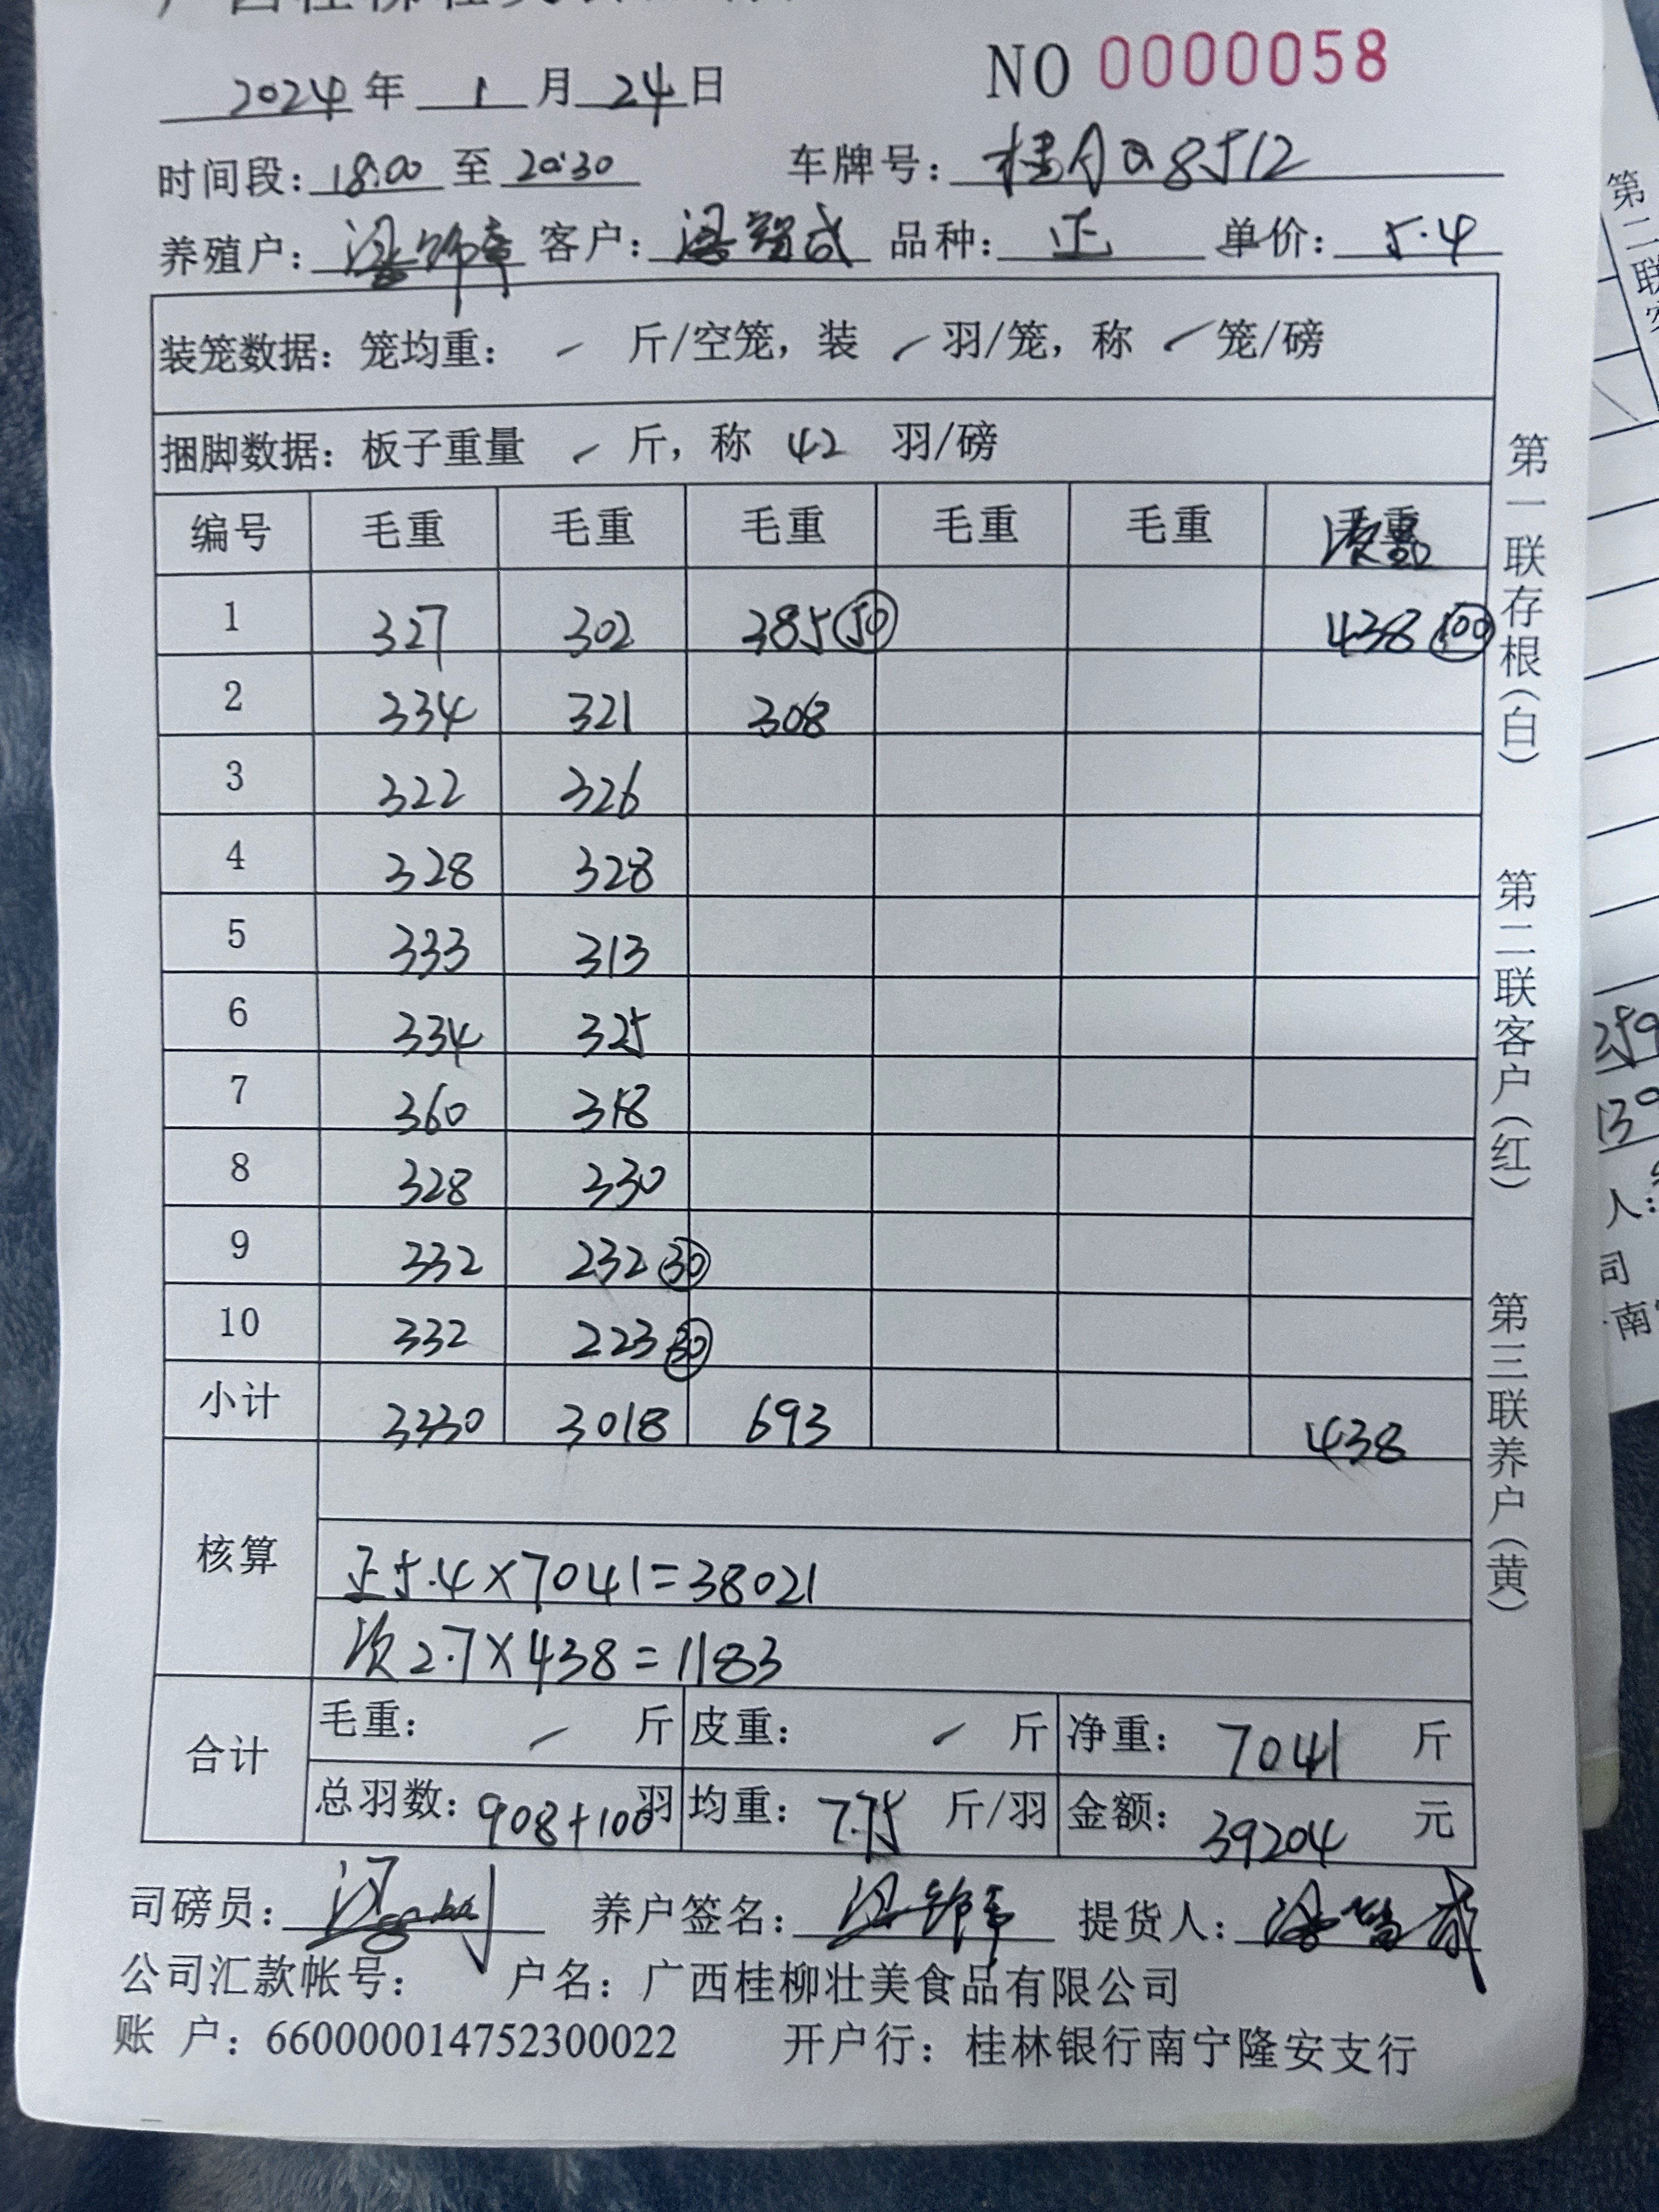 NO 0000058
2024 年 1 月 24 日
时间段: 18:00 至 20:30 车牌号: 桂A Q8512
养殖户: 梁锦章 客户: 梁智成 品种: 正 单价: 5.4
装笼数据: 笼均重: - 斤/空笼, 装 - 羽/笼, 称 - 笼/磅
捆脚数据: 板子重量 - 斤, 称 42 羽/磅
编号 毛重 毛重 毛重 毛重 毛重
1 327 302 385 50 438 100
2 334 321 308
3 322 326
4 328 328
5 333 313
6 334 325
7 360 318
8 328 330
9 332 232 30
10 332 223 30
小计 3330 3018 693 438
核算
正5.4×7041=38021
次2.7×438=1183
合计
毛重: - 斤 皮重: - 斤 净重: 7041 斤
总羽数: 908+100羽 均重: 7.75 斤/羽 金额: 39204 元
司磅员: 养户签名: 梁锦章 提货人: 梁智成
公司汇款帐号: 户名: 广西桂柳壮美食品有限公司
账 户: 660000014752300022 开户行: 桂林银行南宁隆安支行
第一联存根(白)
第二联客户(红)
第三联养户(黄)